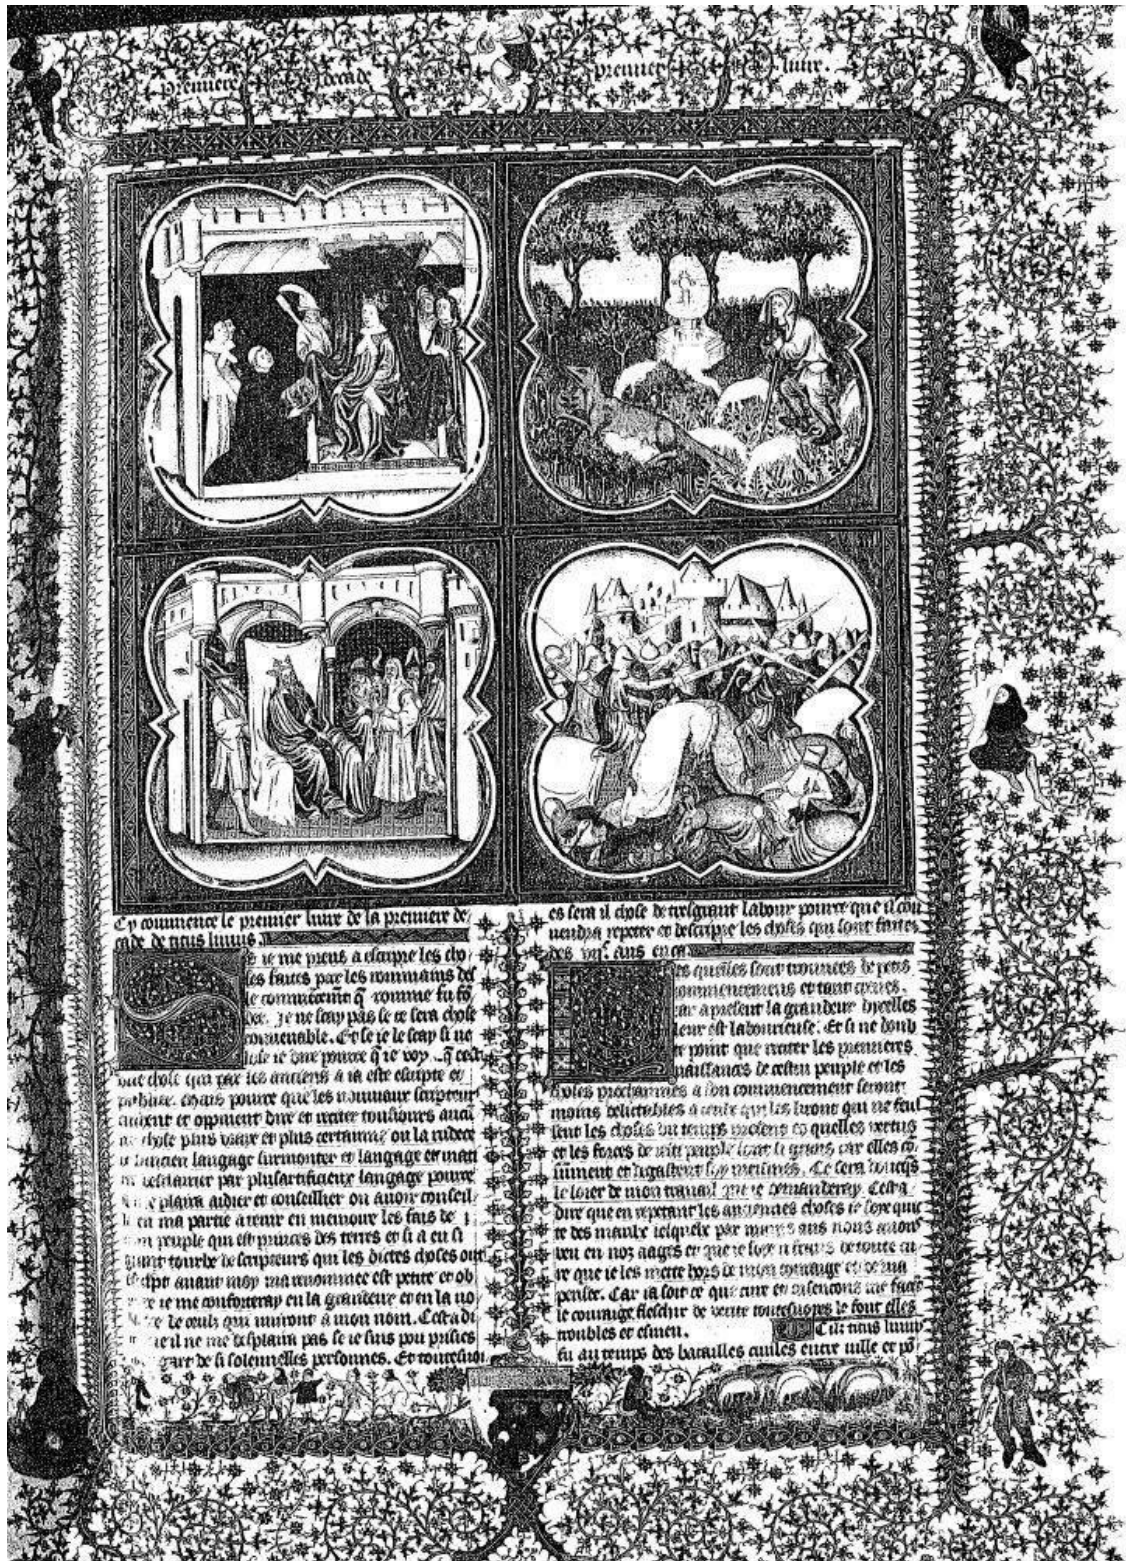 premiere decade premier liure.
Cy commence le premier liure de la premiere de
cade de titus liuius.
Se ie me prens a escripre les cho
ses faites par les rommains des
le commẽcemt q̃ romme fu fõ
dee. Je ne scay pas se ce sera chose
conuenable. Et se ie le scay si ne
lose ie dire pource q̃ ie voy q̃ cest
une chose qui par les anciens a ia este escripte et
publiee. Mais pource que les nouuiaux scripteurs
cuident et oppinent dire et reciter tousiours aucũ
ne chose plus vraie et plus certaine ou la rudece
du lancien langage surmonter et langage
par plus artificieux langage pource
plaira aidier et conseillier ou auoir conseil
en ma partie a tenir en memoire les fais de
peuple qui est princes des terres et si a en si
grant tourbe de scripteurs qui les dictes choses ont
escript auant moy ma renommee est petite et ob
ie me conforteray en la grandeur et en la no
de ceulx qui nuiront a mon nom. Cest a di
il ne me desplaira pas se ie suis pou prisies
de si solennelles personnes. Et toutesuoi
es sera il chose de tresgrant labour pource que il cou
uendra repeter et descripre les choses qui sont faites
des vijc. ans en ca
es quelles sont trouuees de petis
commencemens et tant creues.
car a present la grandeur dycelles
leur est labourieuse. Et si ne doub
te point que reciter les premieres
naissances de cestui peuple et les
choses prochainnes a son commencement seront
moins delictables a ceulx qui les liront qui ne seul
sent les choses du temps present es quelles vertus
et les forces de peuple sont si grans car elles cõ
sument et degastent soy meismes. Ce sera doncqs
le loier de mon trauail que ie demanderay. Cest a
dire que en repetant les anciennes choses ie soye quic
te des maulx lesquelx par ans nous auons
veu en noz aages et que ie soye de toute cu
re que ie les mette hors de mon courage et de ma
pensee. Car ia soit ce que cure et me face
le courage fleschir de verite toutesuoyes le font elles
troubles et esmeu. Cilz titus liuius
fu au temps des batailles ciuiles entre iulle et põ